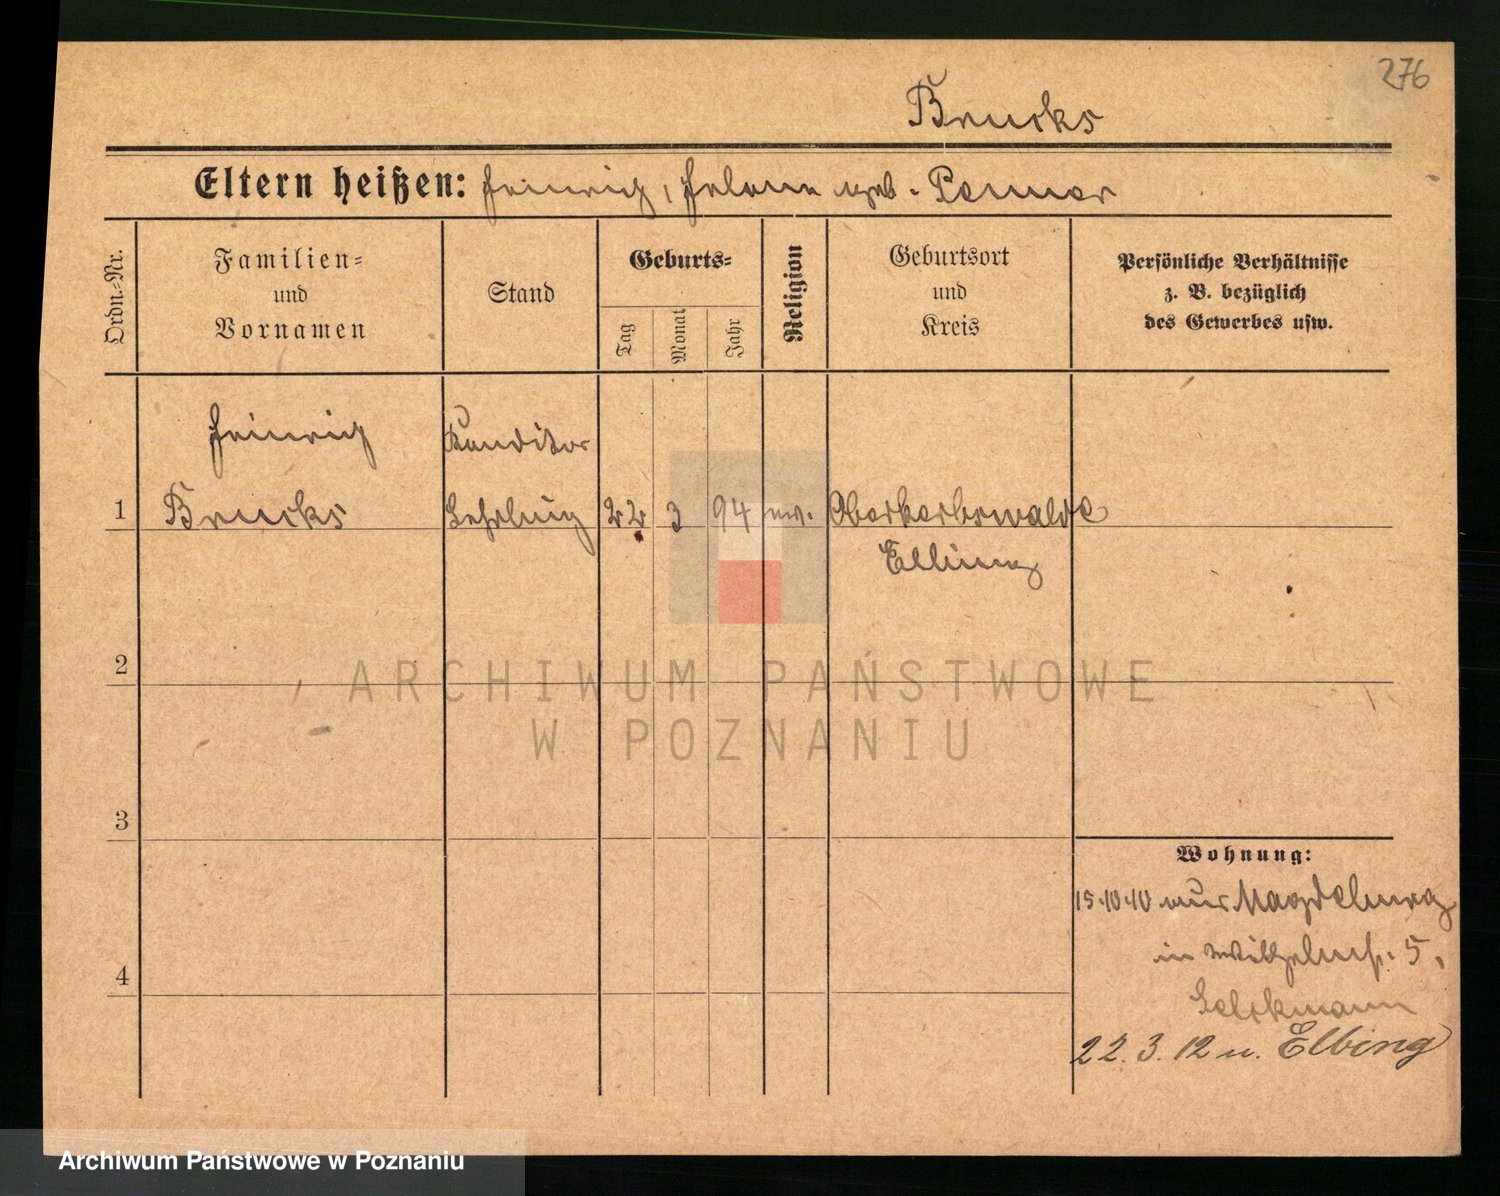 276
Brucks
Eltern heißen: Heinrich, Helene geb. Penner
Ordn.-Nr.
Familien-
und
Vornamen
Stand
Geburts-
Tag
Monat
Jahr
Religion
Geburtsort
und
Kreis
Persönliche Verhältnisse
z. B. bezüglich
des Gewerbes usw.
Heinrich Konditor
1 Brucks Lehrling 22 3 94 ev. Oberkerbswalde
Elbing
2
ARCHIWUM PAŃSTWOWE
W POZNANIU
3
Wohnung:
15.10.10 aus Magdeburg
in Wilhelmpl. 5,
4
22.3.12 n. Elbing
Archiwum Państwowe w Poznaniu